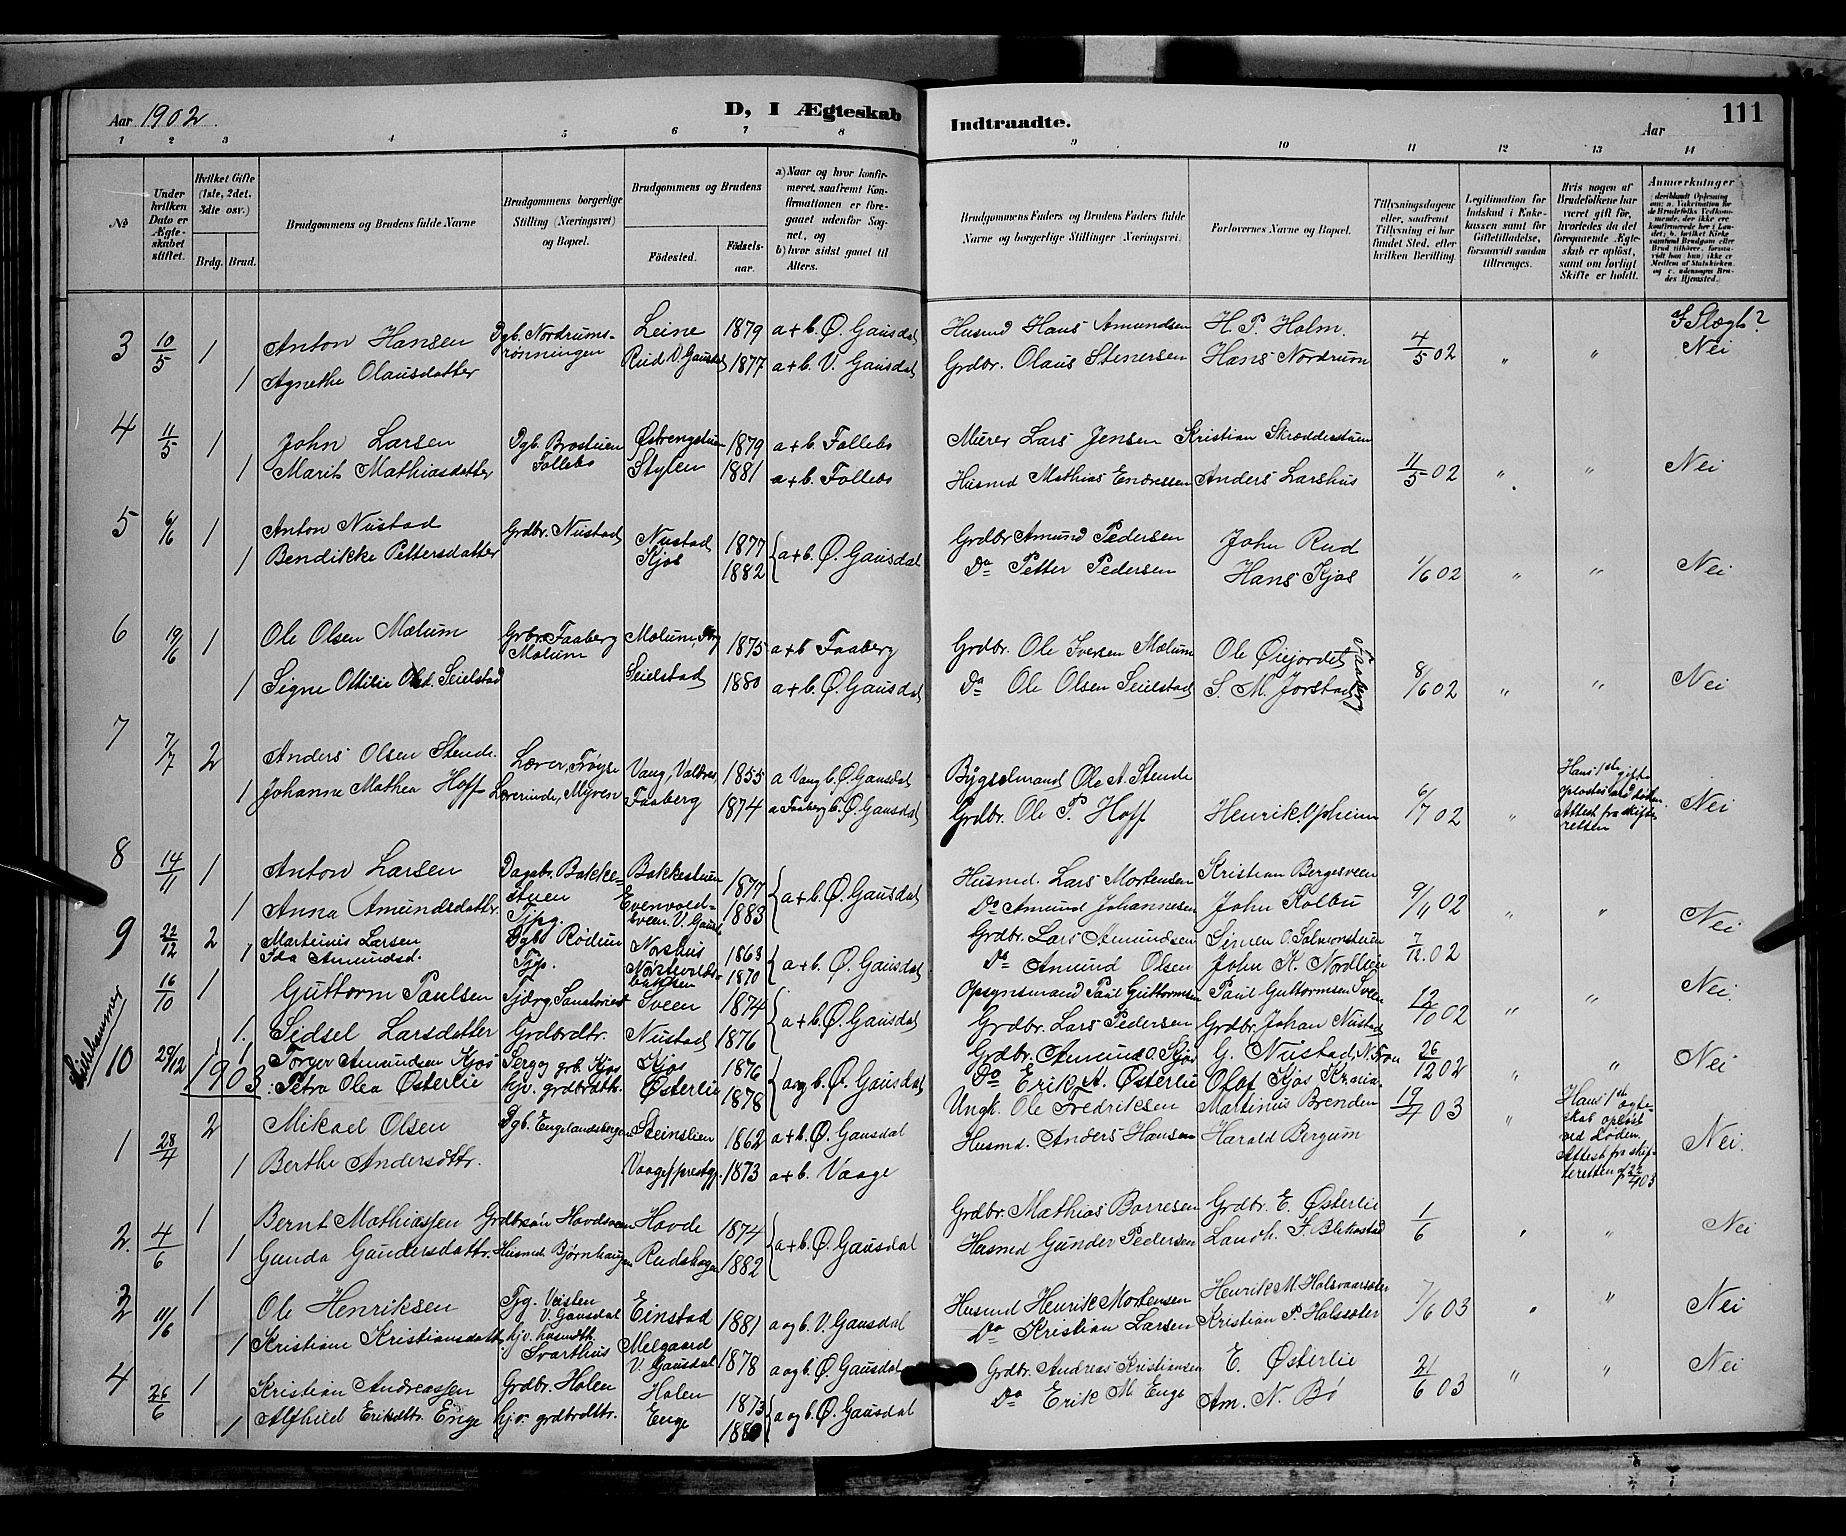 Aar 1902.
D, I Ægteskab
Indtraadte.
Aar
111
1 2 3 4 5 6 7 8 9 10 11 12 13 14
№
Under hvilken Dato er Ægteskabet stiftet.
Hvilket Gifte (1ste, 2det, 3die osv.)
Brdg. Brud.
Brudgommens og Brudens fulde Navne
Brudgommens borgerlige Stilling (Næringsvei) og Bopæl.
Brudgommens og Brudens
Fødested.
Fødselsaar.
a) Naar og hvor konfirmeret, saafremt Konfirmationen er foregaaet udenfor Sognet, og
b) hvor sidst gaaet til Alters.
Brudgommens Faders og Brudens Faders fulde Navne og borgerlige Stillinger (Næringsvei).
Forlovernes Navne og Bopæl.
Tillysningsdagene eller, saafremt Tillysning ei har fundet Sted, efter hvilken Bevilling.
Legitimation for Indskud i Enkekassen samt for Giftetilladelse, forsaavidt saadan tiltrænges.
Hvis nogen af Brudefolkene har været gift før, hvorledes da det foregaaende Ægteskab er opløst, samt om lovligt Skifte er holdt.
Anmærkninger
I Slægt?
3 10/5 1 Anton Hansen Dgb. Nordrumsrønningen Leine 1879 a+b. Ø. Gausdal Husmd Hans Amundsen H. P. Holm. 4/5 02 " " Nei
1 Agnethe Olausdatter Rud V. Gausdal 1877 a+b. V. Gausdal Grdbr. Olaus Stenersen Hans Nordrum
4 11/5 1 John Larsen Dgb. Brostuen Follebo Østrengstuen 1879 a+b. Follebo Murer Lars Jensen Kristian Skrædderstuen
1 Marit Mathiasdatter Stylen 1881 a+b. Follebo Husmd Mathias Endressen Anders Larshus 11/5 02 " " Nei
5 6/6 1 Anton Nustad Grdbr. Nustad Nustad 1877 a+b. Ø. Gausdal Grdbr Amund Pedersen John Rud
1 Bendikke Pettersdatter Kjos 1882 Do Petter Pedersen Hans Kjos 1/6 02 " " Nei
6 19/6 1 Ole Olsen Mælum Grbr. Faaberg Mælum Mælum, Fbg 1875 a+b Faaberg Grdbr. Ole Iversen Mælum Ole Øiejordet Faaberg
1 Signe Ottilie Olsd. Seielstad Seielstad 1880 a+b. Ø. Gausdal Do Ole Olsen Seielstad S. M. Jorstad 8/6 02 " " Nei
7 7/7 2 Anders Olsen Stende Lærer, Frøyse Vang, Valdres 1855 a Vang b. Ø. Gausdal Bygselmand Ole A. Stende
Hans 1ste gifte opløst ved døden. Attest fra skifteretten
1 Johanne Mathea Hoff Lærerinde, Myren Faaberg 1874 a Faaberg b. Ø. Gausdal Grdbr. Ole P. Hoff Henrik Opheim 6/7 02 " Nei
8 14/11 1 Anton Larsen Dagab. Bakkestuen Bakkestuen 1877 a+b. Ø. Gausdal Husmd. Lars Mortensen Kristian Bergesveen
1 Anna Amundsdattr. Tjpg. Evenvoldsveen V. Gausd. 1883 Do Amund Johannesen John Kolbu 9/11 02 " " Nei
9 22/12 2 Martinus Larsen Dgb. Rødum Norshus 1863 a+b. Ø. Gausdal Grdbr. Lars Amundsen Simen O. Salmonstuen 7/12 02
1 Ida Amundsd. Tjp. 1870 Do Amund Olsen John K. Nordlien
16/10 1 Guttorm Paulsen Tjærg. Sanatoriet Sveen 1874 a+b. Ø. Gausdal Opsynsmand Paul Guttormsen Paul Guttormsen Sveen 12/10 02 " Nei
1. Sidsel Larsdatter Grdbrdtr. Nustad 1876 Grdbr. Lars Pedersen Grdbr. Johan Nustad
Lillehammer
10 29/12 1 1 Torger Amundsen Kjos Kjos 1876 a og b. Ø. Gausdal Grdbr. Amund O. Kjos G. Nustad, N. Fron 26/12 02 " " Nei
1903
Petra Olea Østerlie hjv. grdbrdtr. Østerlie 1878 Do Erik A. Østerlie Olof Kjos Krania.
1 28/4 2 Mikael Olsen Dgb. Engelandsbergen Steinslien 1862 a+b. Ø. Gausdal Ungk. Ole Fredriksen Martinus Brenden 19/4 03 "
Hans 1ste ægteskab opløst ved Døden. Attest fra skifteretten af 22/4 03
1 Berthe Andersdttr. Vaage prestgj. 1873 a+b. Vaage Husmd. Anders Hansen Harald Bergum Nei.
2. 4/6 1 Bernt Mathiassen Grdbrsøn Hovdsveen Hovde 1874 a+b. Ø. Gausdal Grdbr. Mathias Borresen Grdbr. E. Østerlie 1/6 " " Nei
1 Gunda Gundersdattr. Husmd Bjørnhaugen Rudshagen 1882 Husmd Gunder Pedersen Landh. S. Blekastad
3 11/6 1 Ole Henriksen Tjg. Veisten V. Gausdal Einstad 1881 a og b. V. Gausdal Husmd Henrik Mortensen Henrik M. Halsvaarsæter 7/6 03 " " Nei
1 Kristiane Kristiansdattr. hjv. husmdtr. Svarthus Melgaard V. Gausdal 1878 a og b. Ø. Gausdal Do Kristian Larsen Kristian P. Halssæter
4 26/6 1 Kristian Andreassen Grdbr. Holen Holen 1873 a og b. Ø. Gausdal Grdbr. Andreas Kristiansen E. Østerlie 21/6 03 " " Nei
1 Alfhild Eriksdtr. Enge hjv. grdbrdtr. Enge 1880 Do Erik M. Enge Am. N. Bø